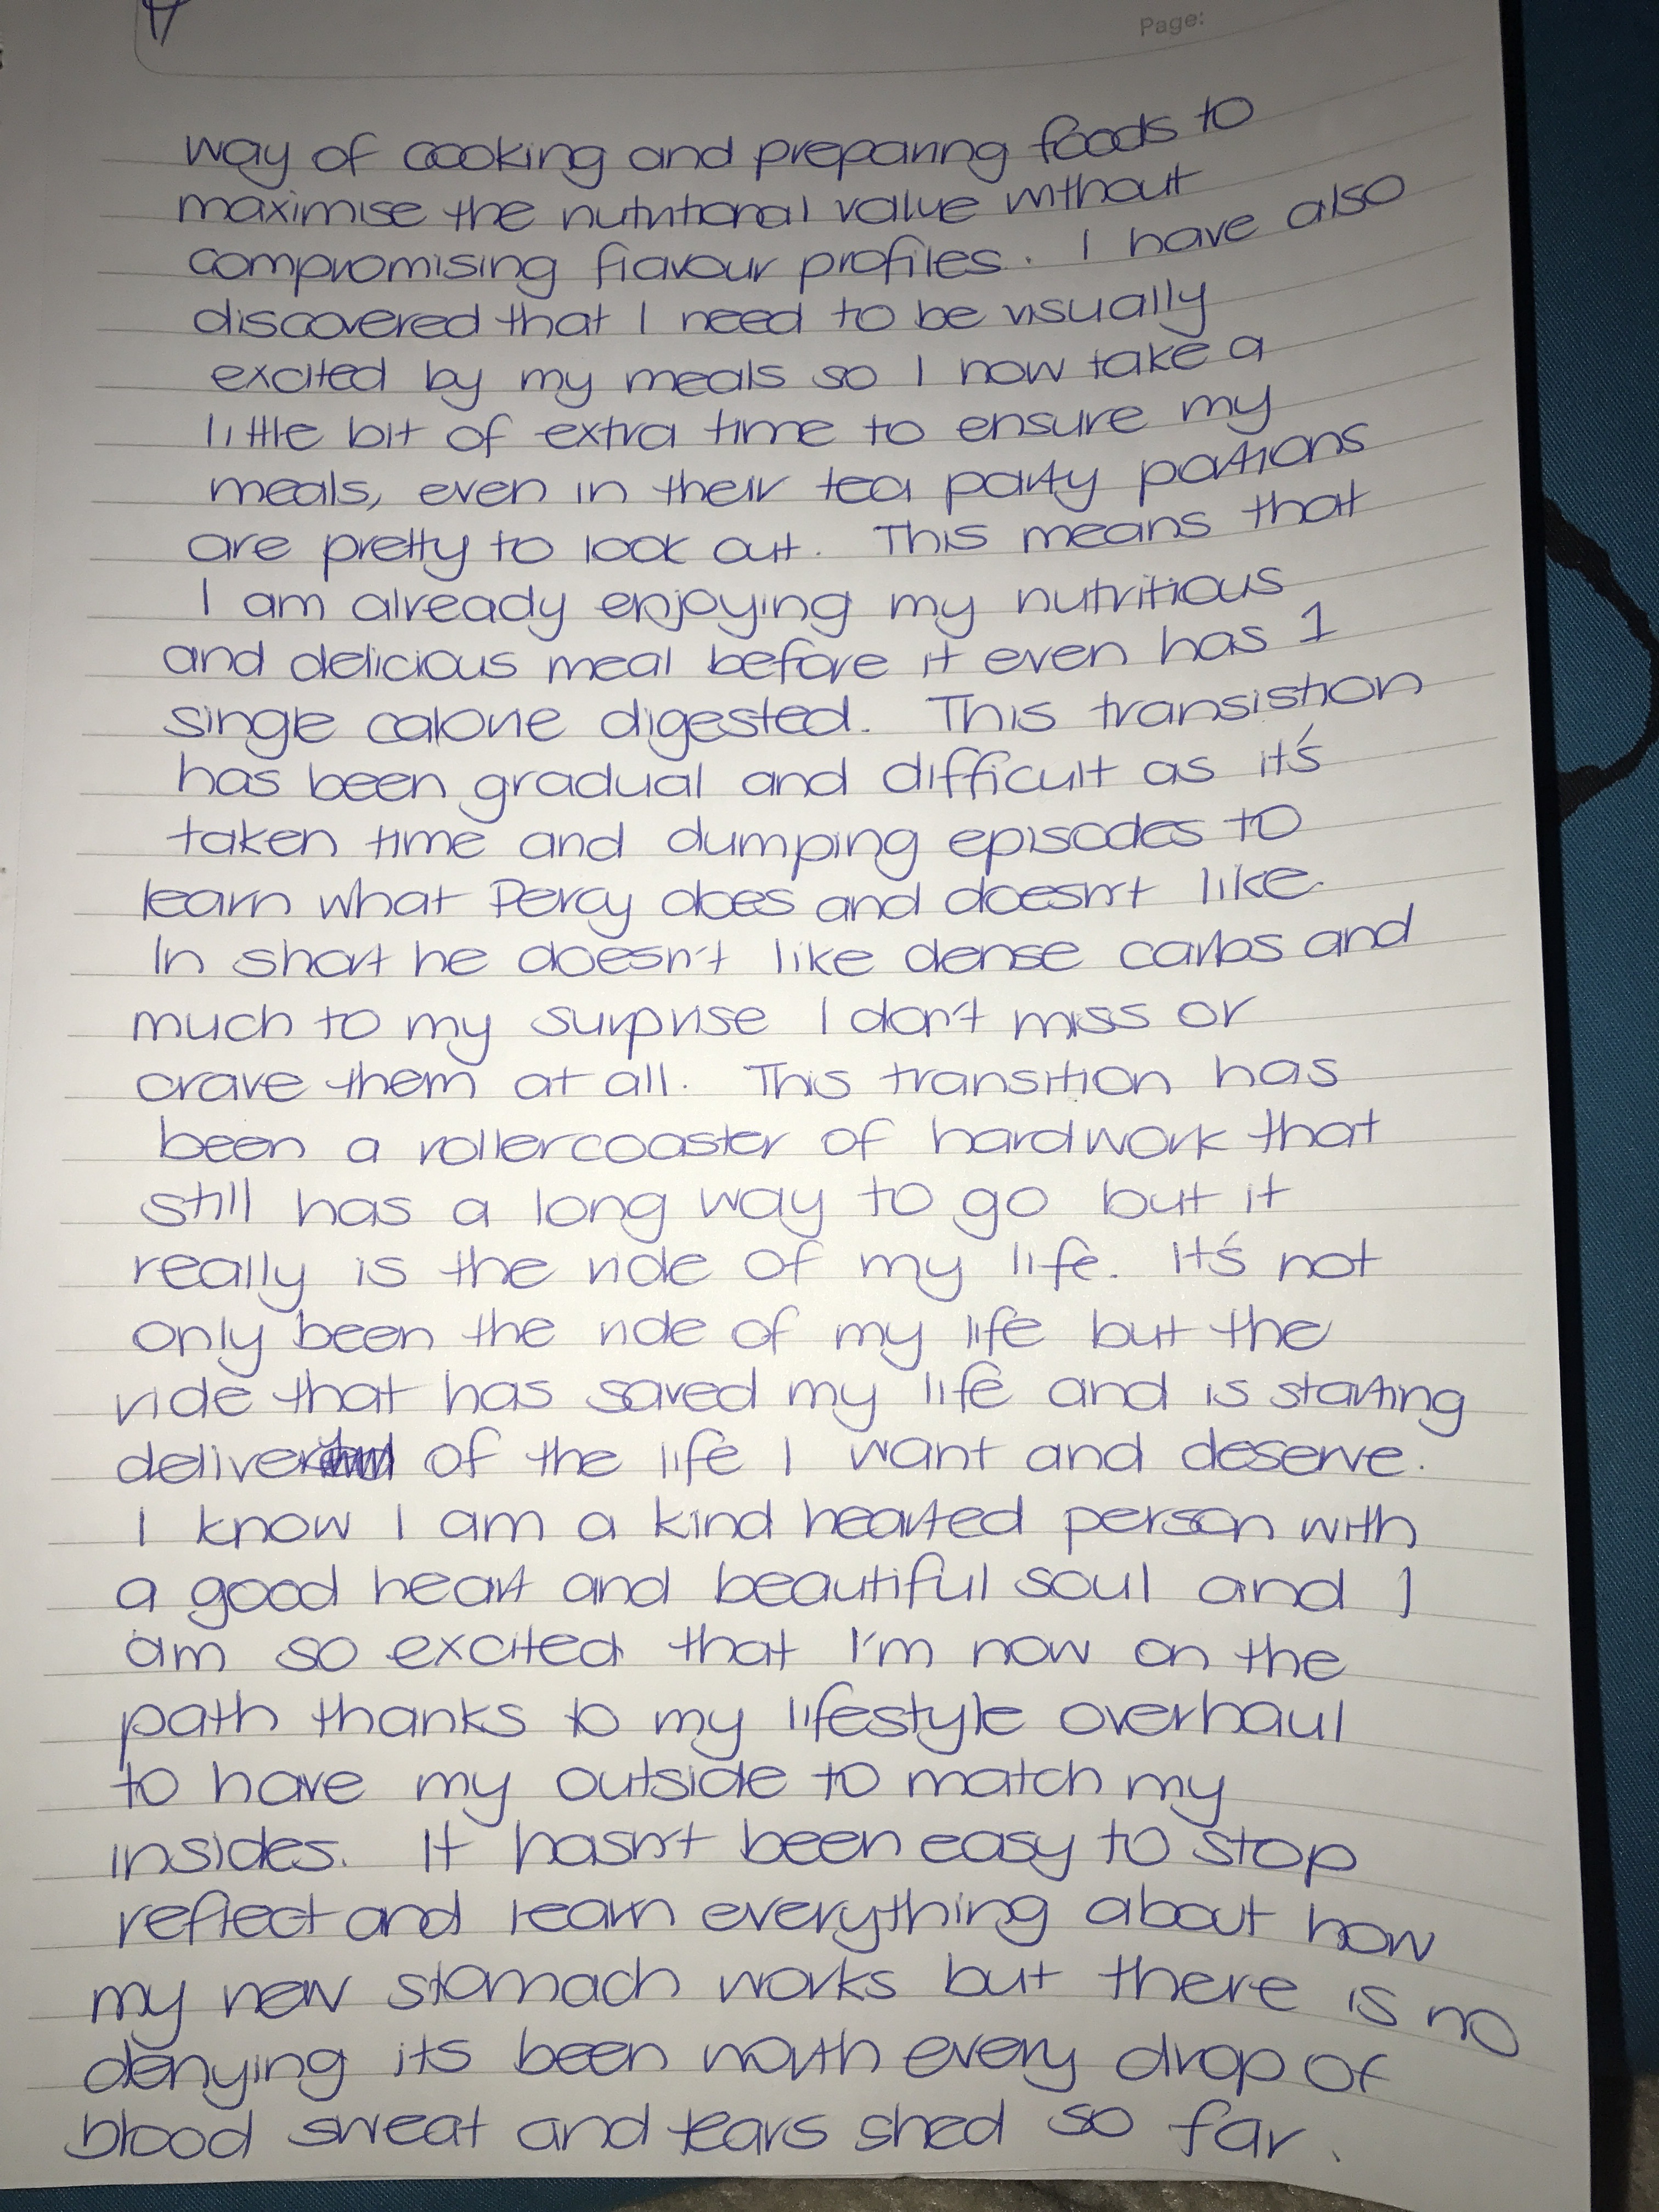 Page:
way of cooking and preparing foods to
maximise the nutritional value without
compromising flavour profiles. I have also
discovered that I need to be visually
excited by my meals so I now take a
little bit of extra time to ensure my
meals, even in their tea party portions
are pretty to look out. This means that
I am already enjoying my nutritious
and delicious meal before it even has 1
single calorie digested. This transistion
has been gradual and difficult as it's
taken time and dumping episodes to
learn what Percy does and doesn't like.
In short he doesn't like dense carbs and
much to my surprise I don't miss or
crave them at all. This transition has
been a rollercoaster of hardwork that
still has a long way to go but it
really is the ride of my life. It's not
only been the ride of my life but the
ride that has saved my life and is starting
of the life I want and deserve.
I know I am a kind hearted person with
a good heart and beautiful soul and I
am so excited that I'm now on the
path thanks to my lifestyle overhaul
to have my outside to match my
insides. It hasn't been easy to stop
reflect and learn everything about how
my new stomach works but there is no
denying its been worth every drop of
blood sweat and tears shed so far.